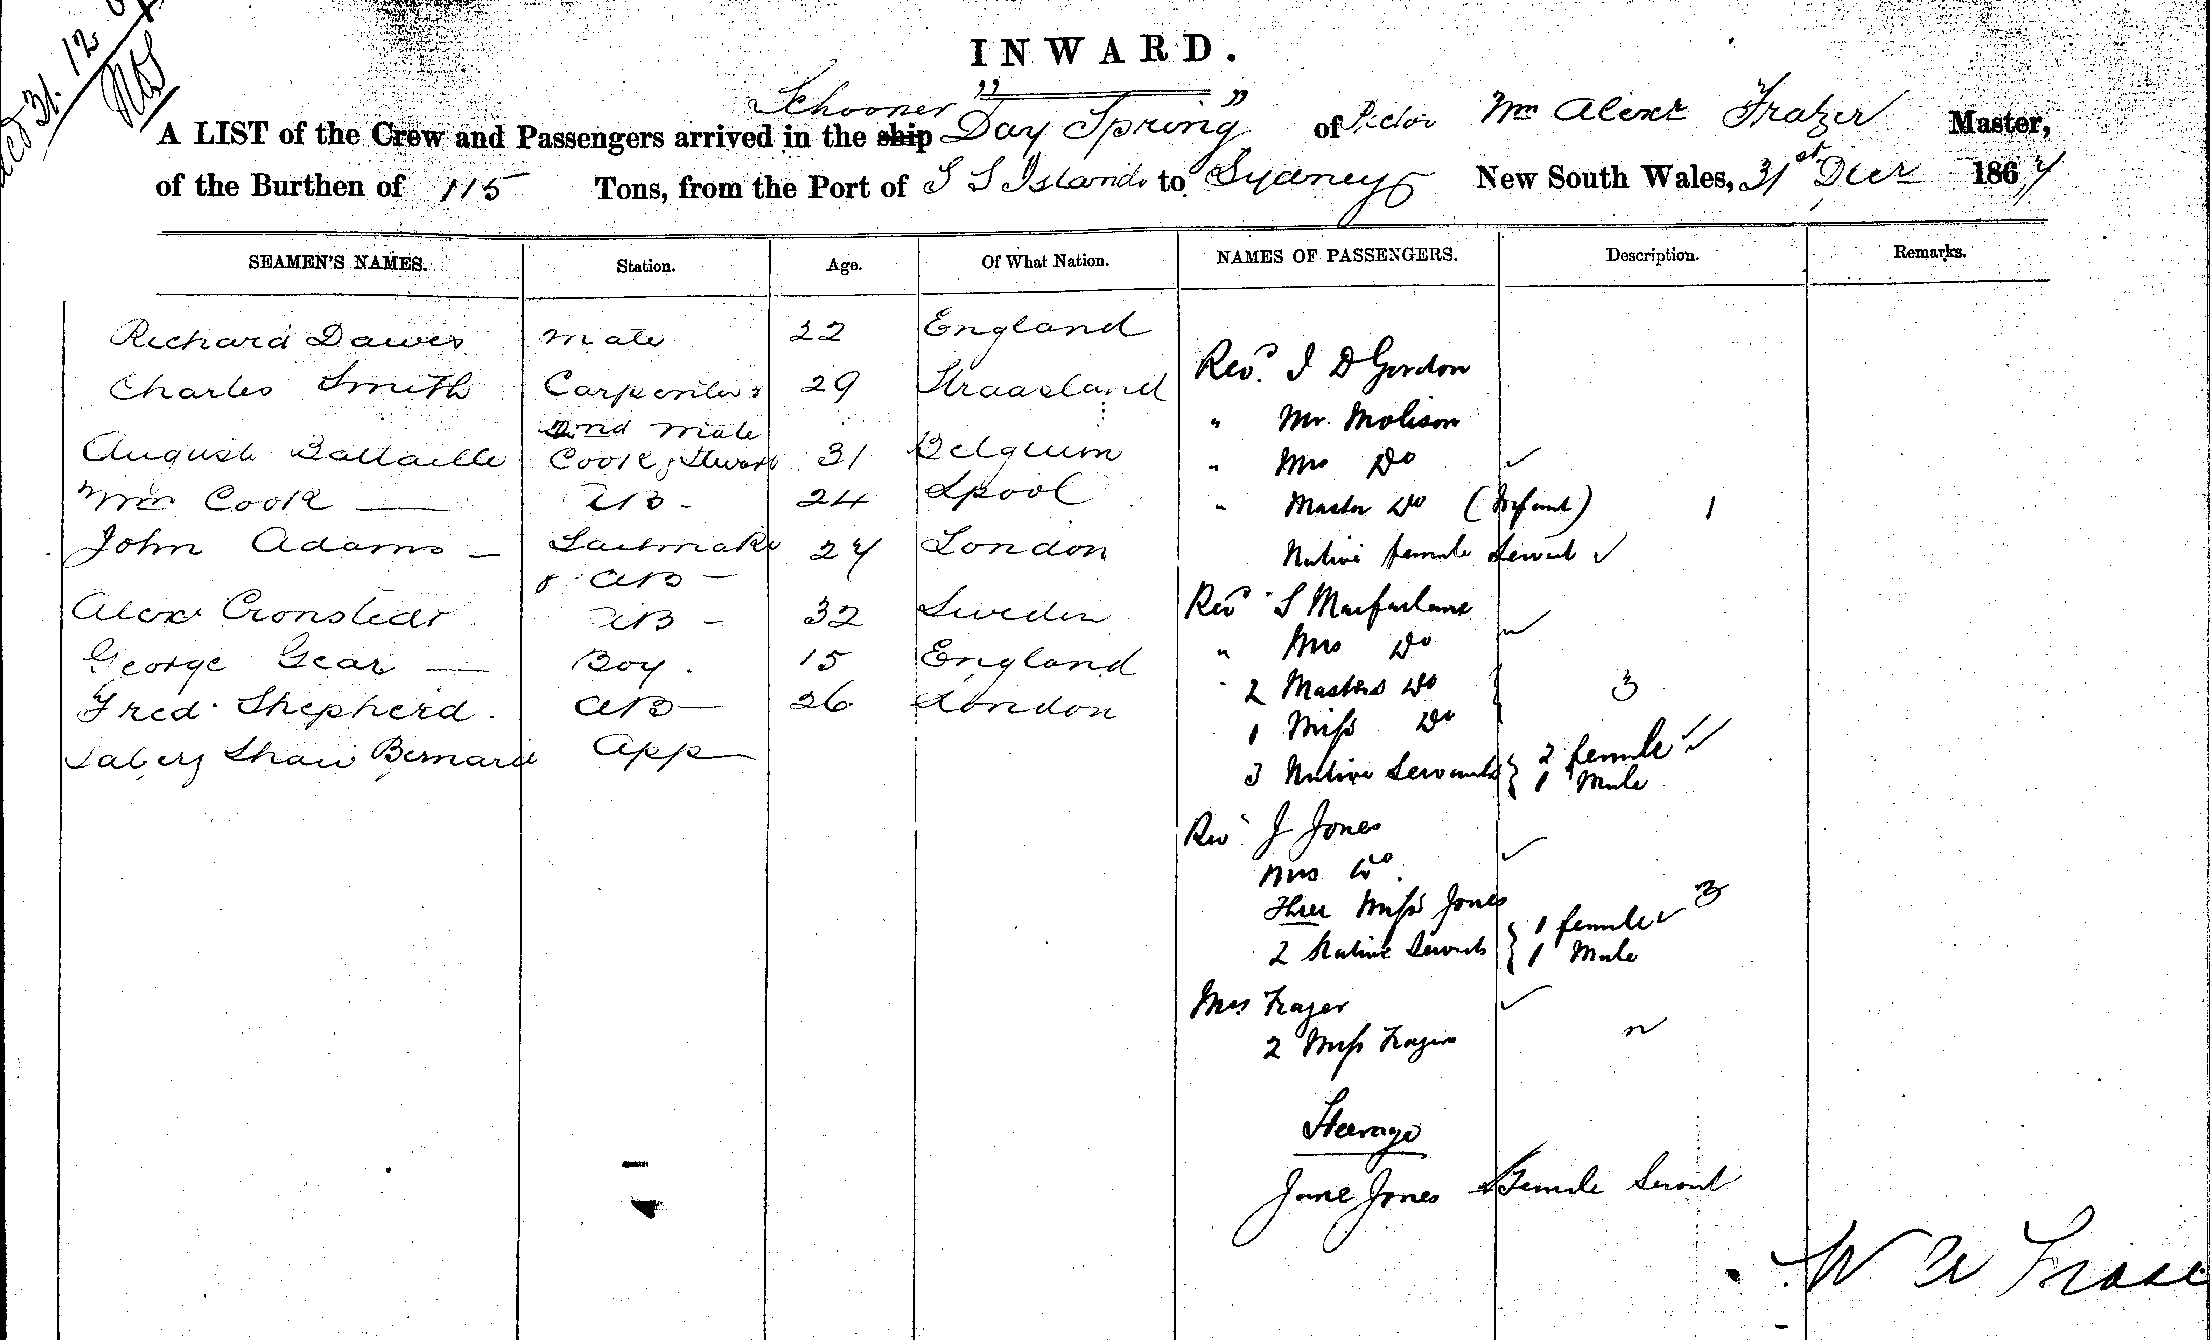 31. 12
INWARD.
Schooner
A LIST of the Crew and Passengers arrived in the ship "Day Spring" of Pictor Wm Alexr Frazer Master,
of the Burthen of 115 Tons, from the Port of S S Islands to Sydney New South Wales, 31st Decr 1867
SEAMEN'S NAMES. Station. Age. Of What Nation. NAMES OF PASSENGERS. Description. Remarks.
Richard Dawes Mate 22 England
Charles Smith Carpenter & 29
2nd Mate
August Battaille Cook & Steward 31 Belgium
Wm Cook — AB - 24 Lpool
John Adams — Sailmaker 27 London
& AB —
Alexr Cronstedt AB - 32 Sweden
George Gear — Boy. 15 England
Fred. Shepherd. AB — 26 London
Shaw Bernard App
Revd. J D Gordon
" Mr. Molison
" Mrs Do
" Master Do (Infant) 1
Native female Servant
Revd S Macfarlane
" Mrs Do
" 2 Masters Do 3
1 Miss Do
3 Native Servants } 2 female
1 Male
Revd J Jones
Mrs Do.
Three Miss Jones 3
2 Native Servants } 1 female
1 Male
Mrs Frazer
2 Miss Frazers
Steerage
Jane Jones Female Servant
W A Frase